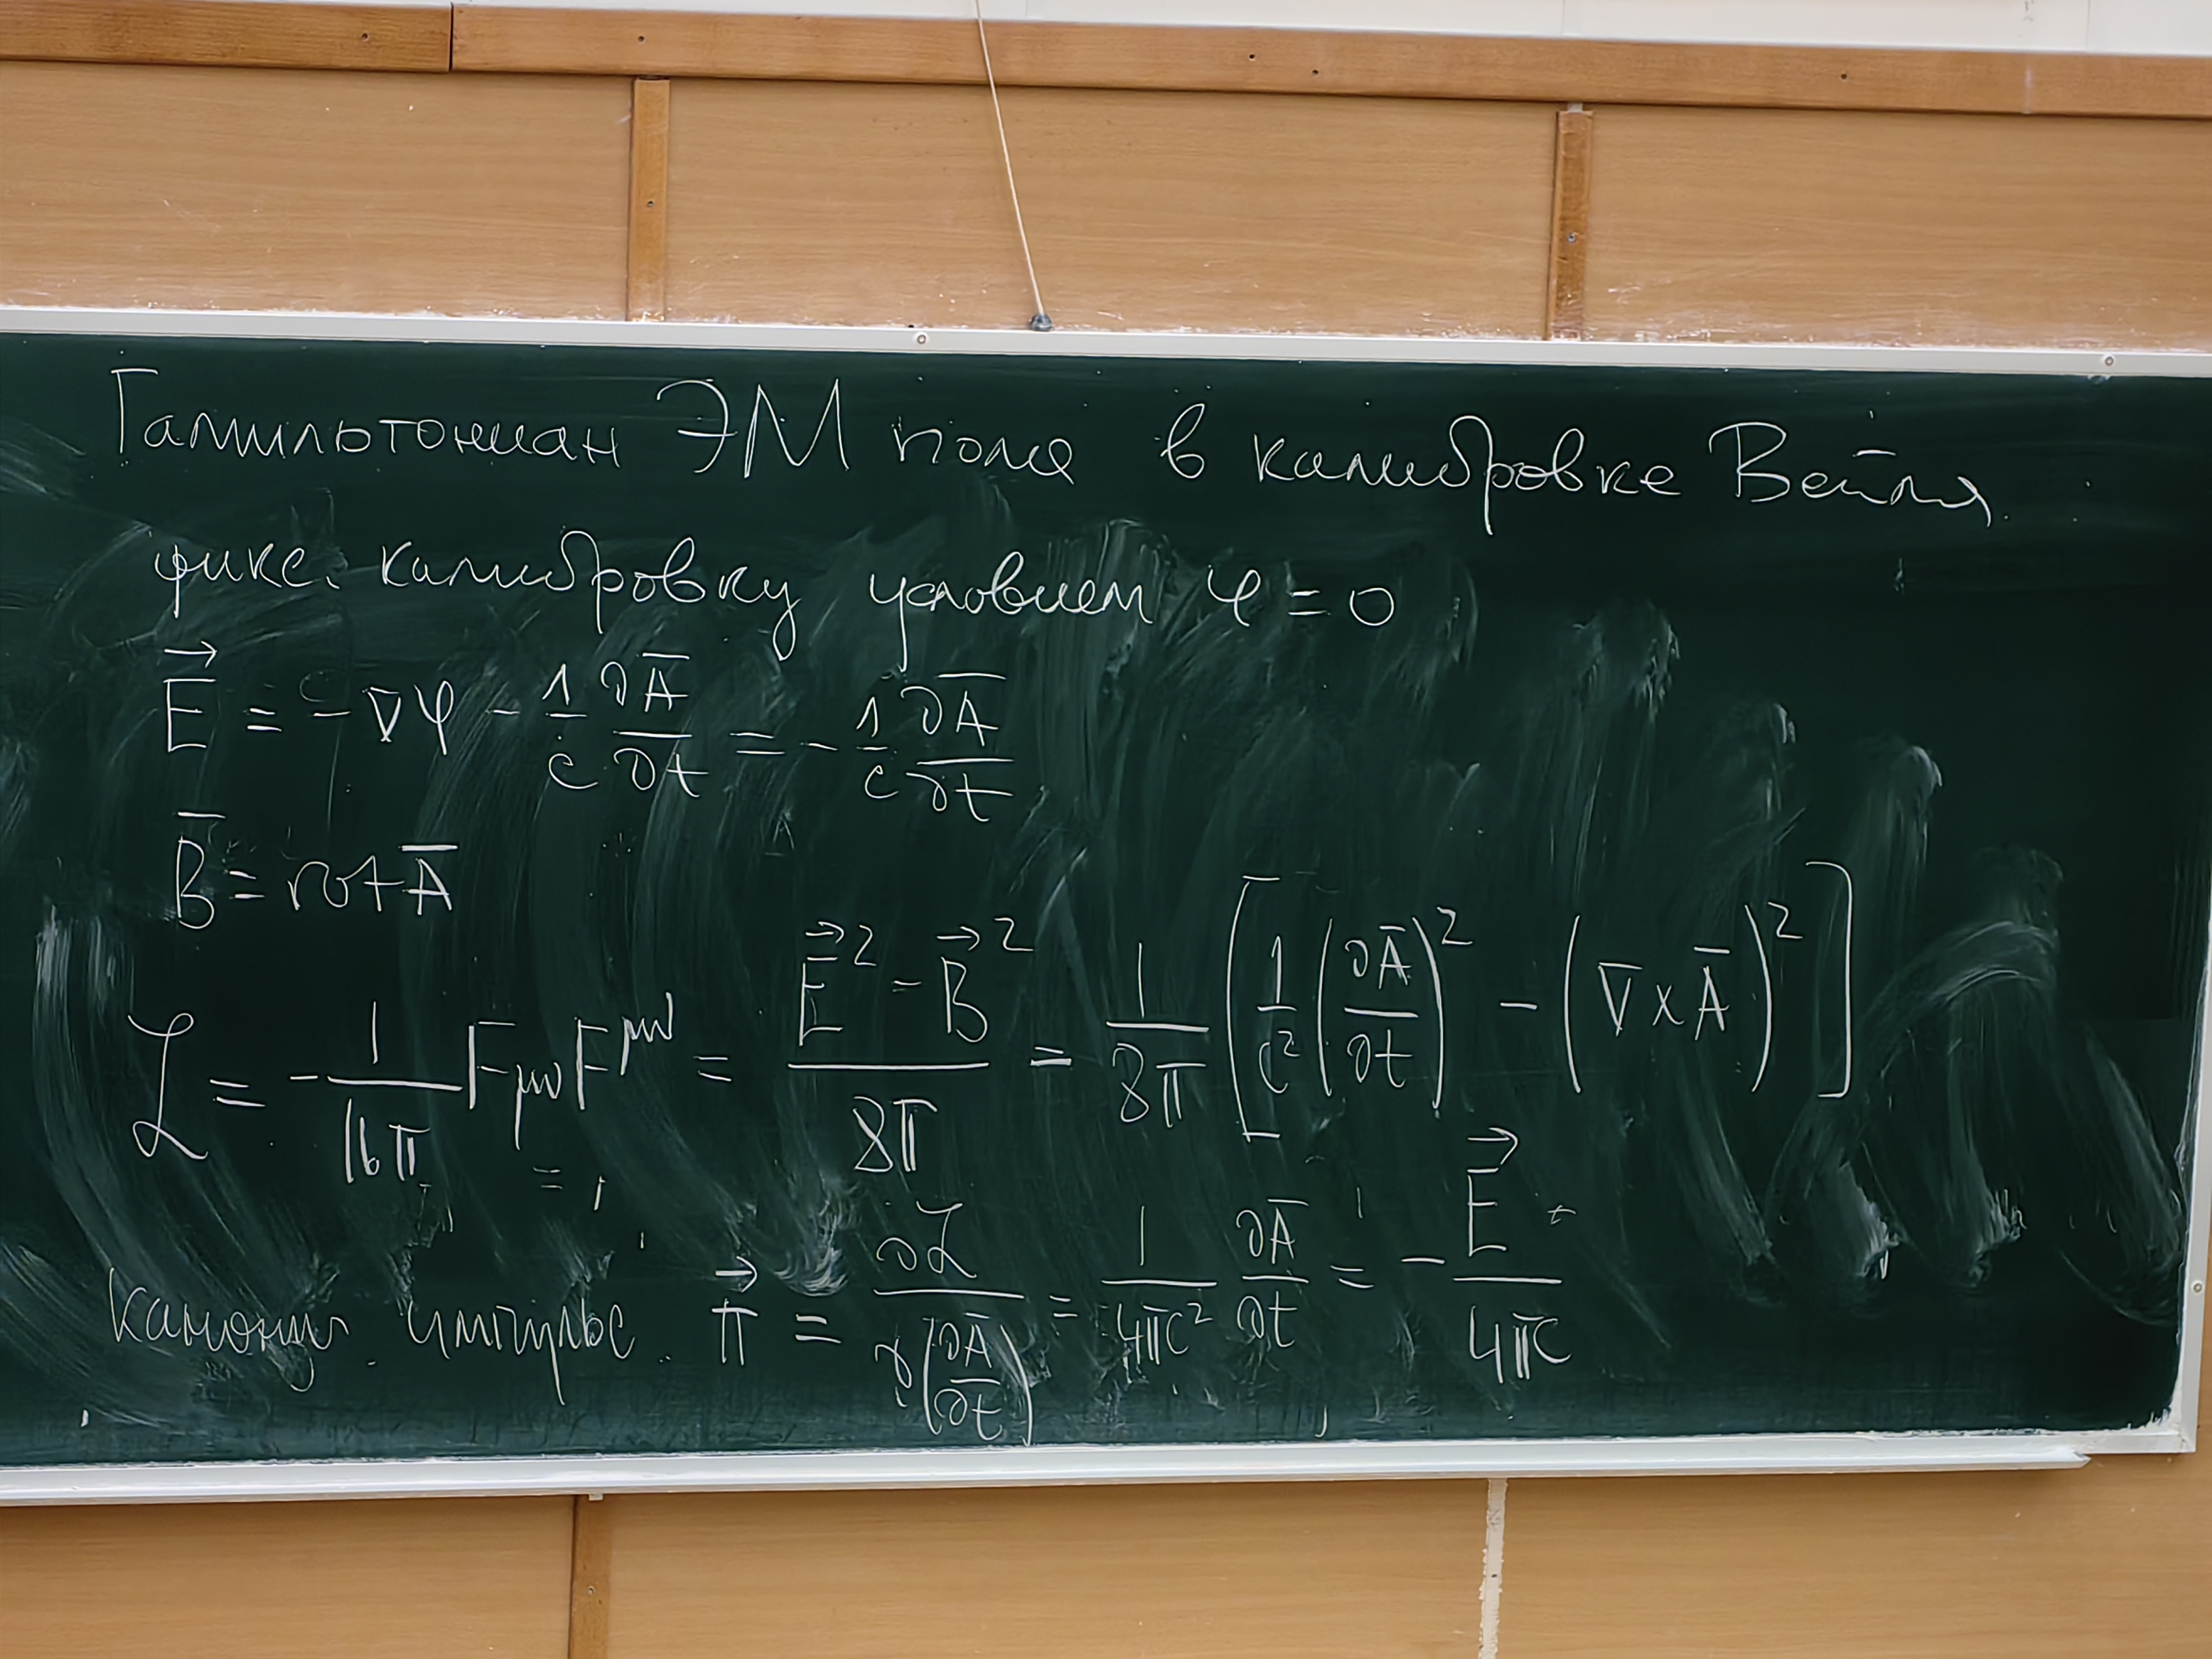 Гамильтониан ЭМ поля в калибровке Вейля
фикс. калибровку условием φ = 0
$\vec{E} = -\nabla\varphi - \frac{1}{c}\frac{\partial \bar{A}}{\partial t} = -\frac{1}{c}\frac{\partial \bar{A}}{\partial t}$
$\bar{B} = rot \bar{A}$
$\mathcal{L} = -\frac{1}{16\pi} F_{\mu\nu}F^{\mu\nu} = \frac{\vec{E}^2 - \vec{B}^2}{8\pi} = \frac{1}{8\pi}\left[\frac{1}{c^2}\left(\frac{\partial \bar{A}}{\partial t}\right)^2 - \left(\nabla \times \bar{A}\right)^2\right]$
канонич. импульс. $\vec{\pi} = \frac{\partial \mathcal{L}}{\partial\left(\frac{\partial \bar{A}}{\partial t}\right)} = \frac{1}{4\pi c^2}\frac{\partial \bar{A}}{\partial t} = -\frac{\vec{E}}{4\pi c}$